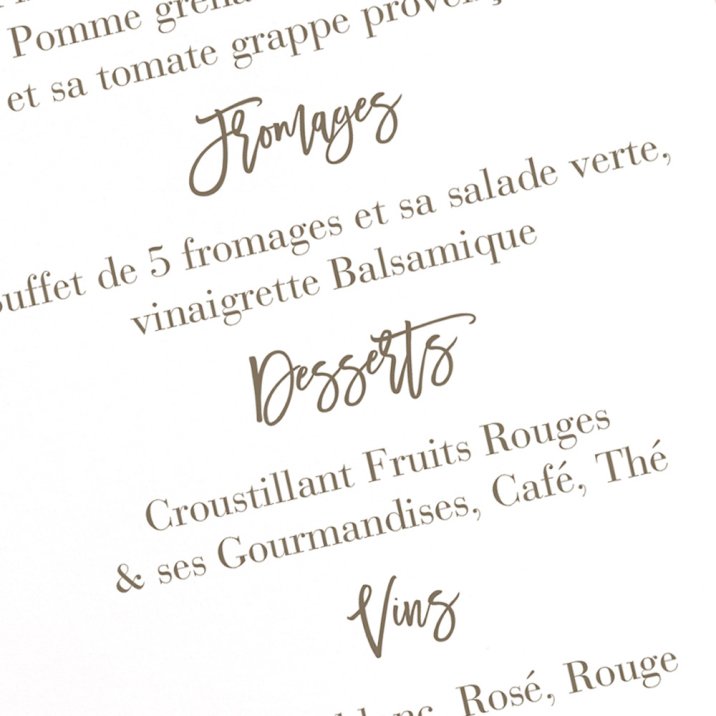 Pomme
et sa tomate grappe
Fromages
de 5 fromages et sa salade verte,
vinaigrette Balsamique
Desserts
Croustillant Fruits Rouges
& ses Gourmandises, Café, Thé
Vins
Rosé, Rouge